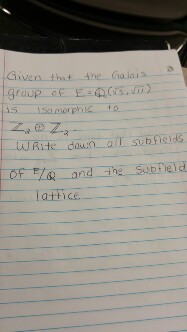 Given that the Galois
group of E = Q(√5, √11)
is isomorphic to
Z₂ ⊕ Z₂.
Write down all subfields
of E/Q and the subfield
lattice